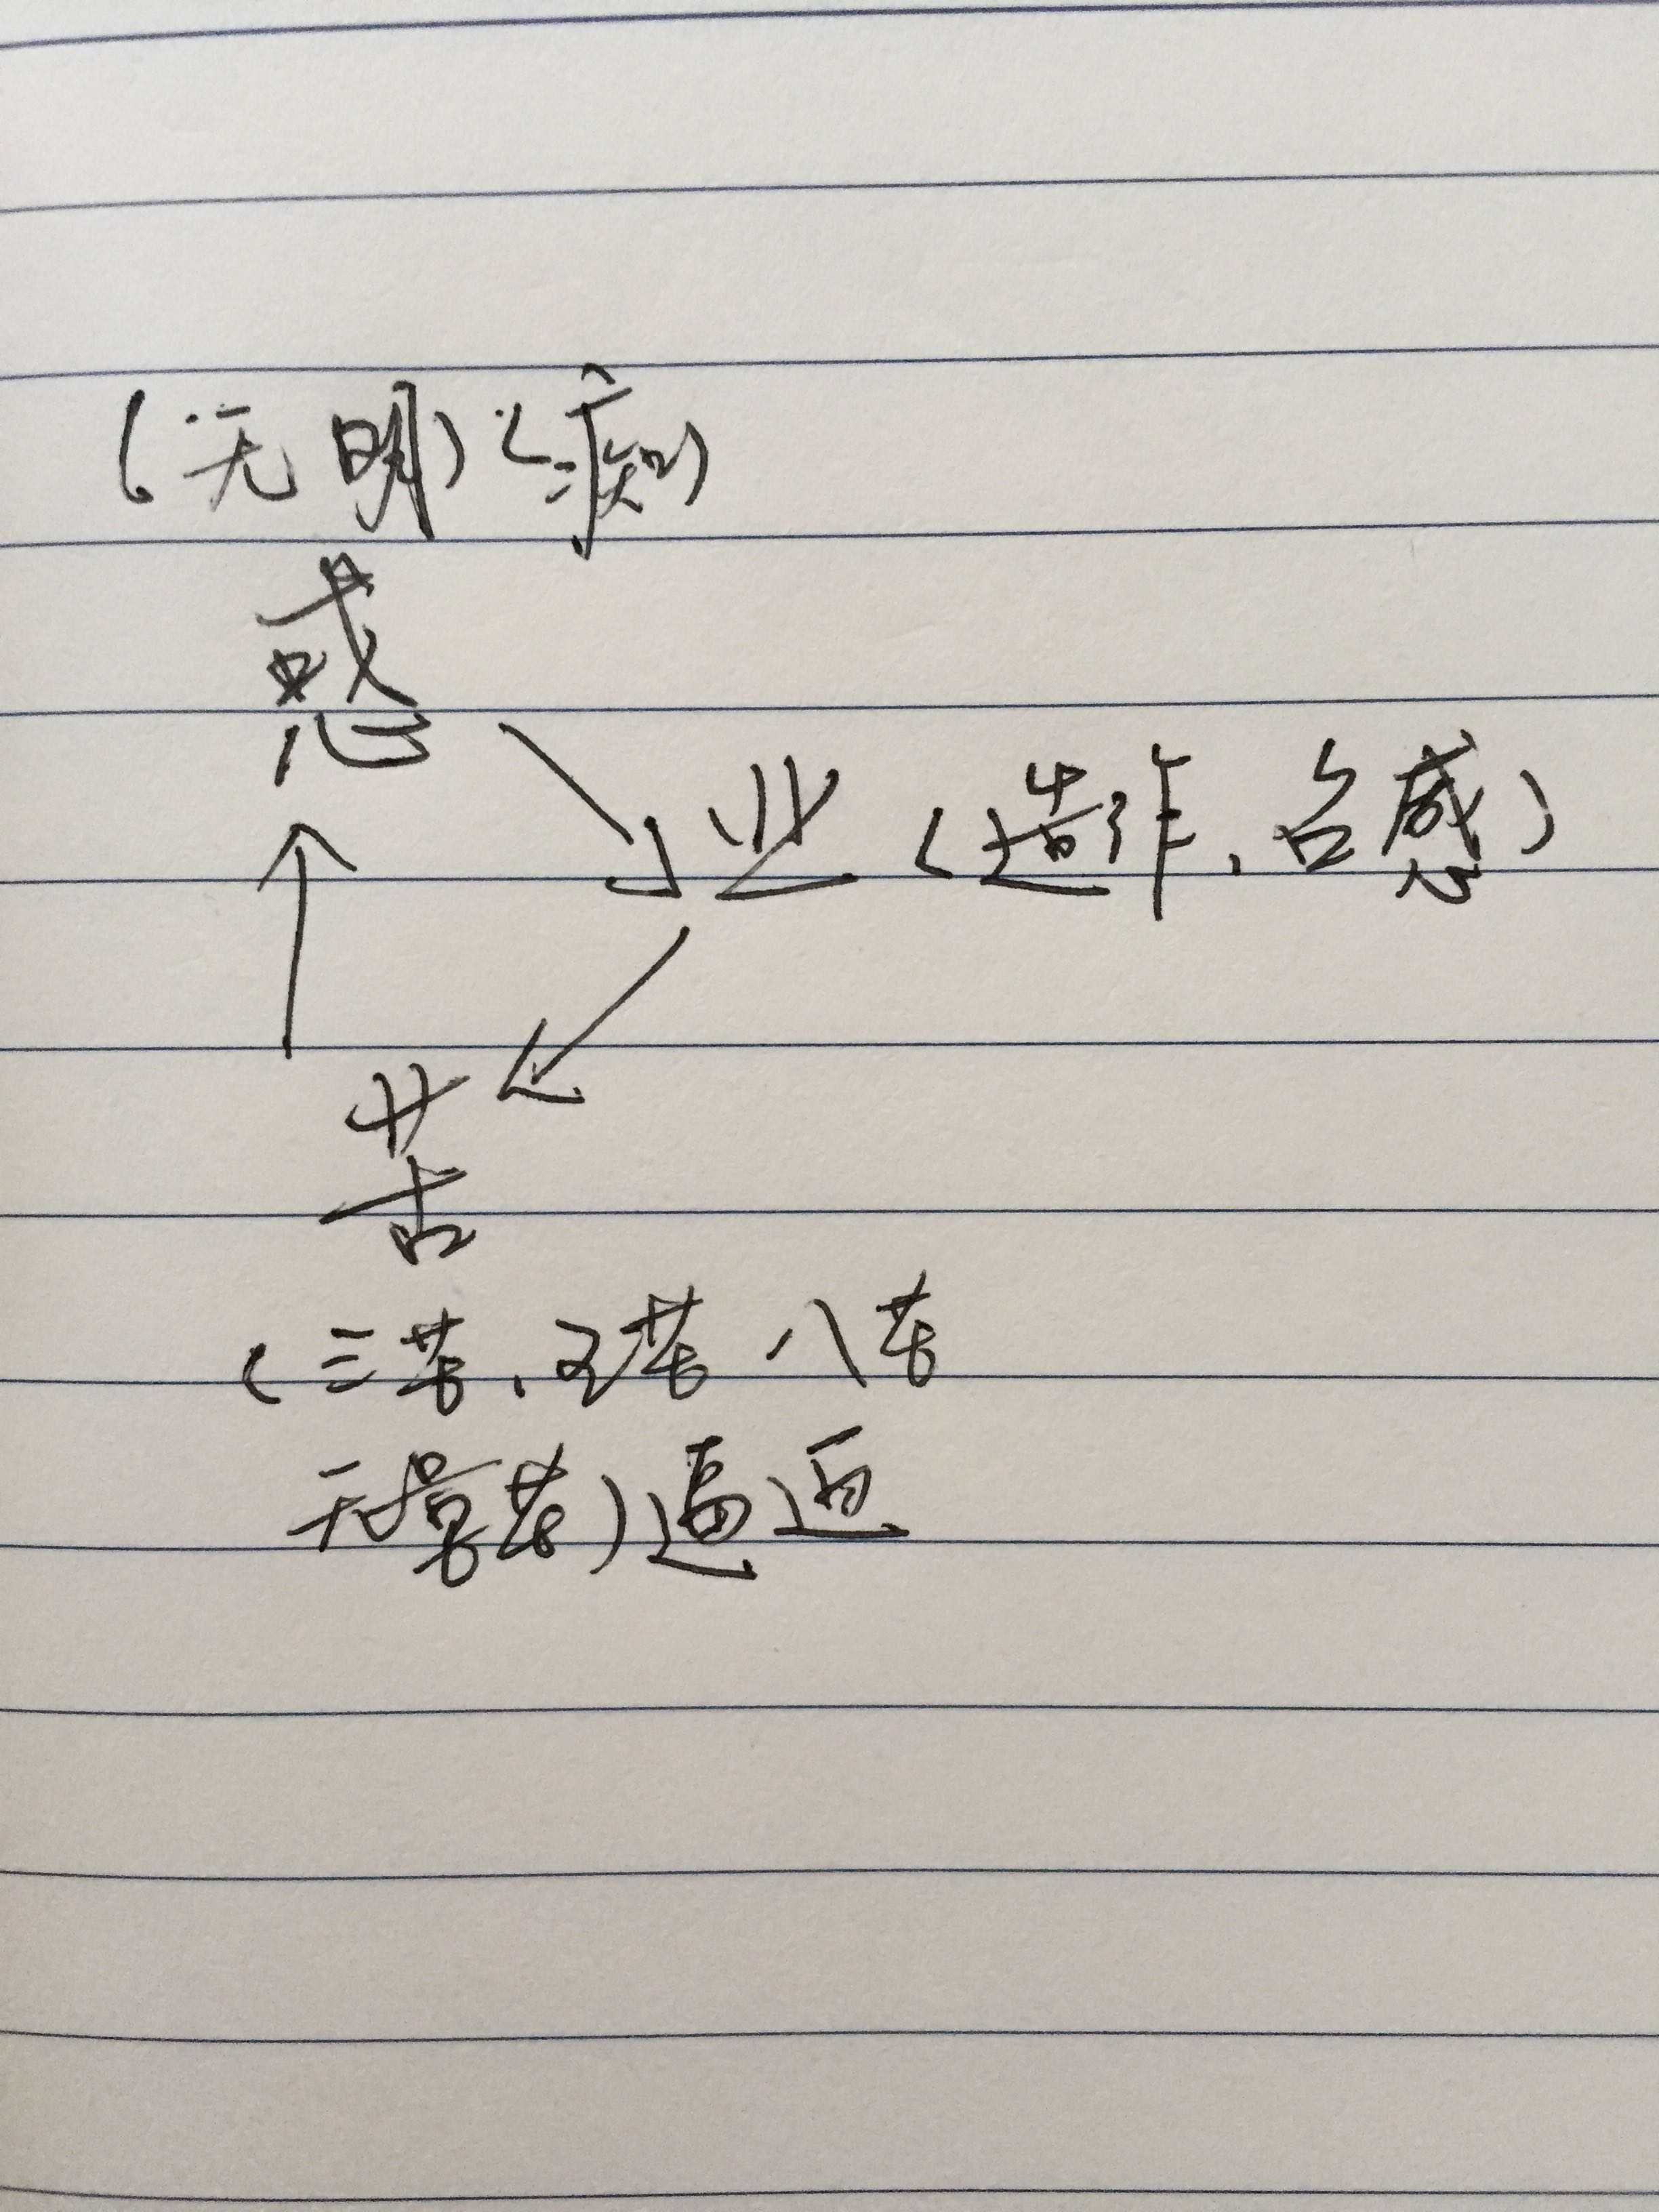 (无明)(痴)
惑
业(造作、召感)
苦
(三苦、五苦 八苦
无量苦)逼迫